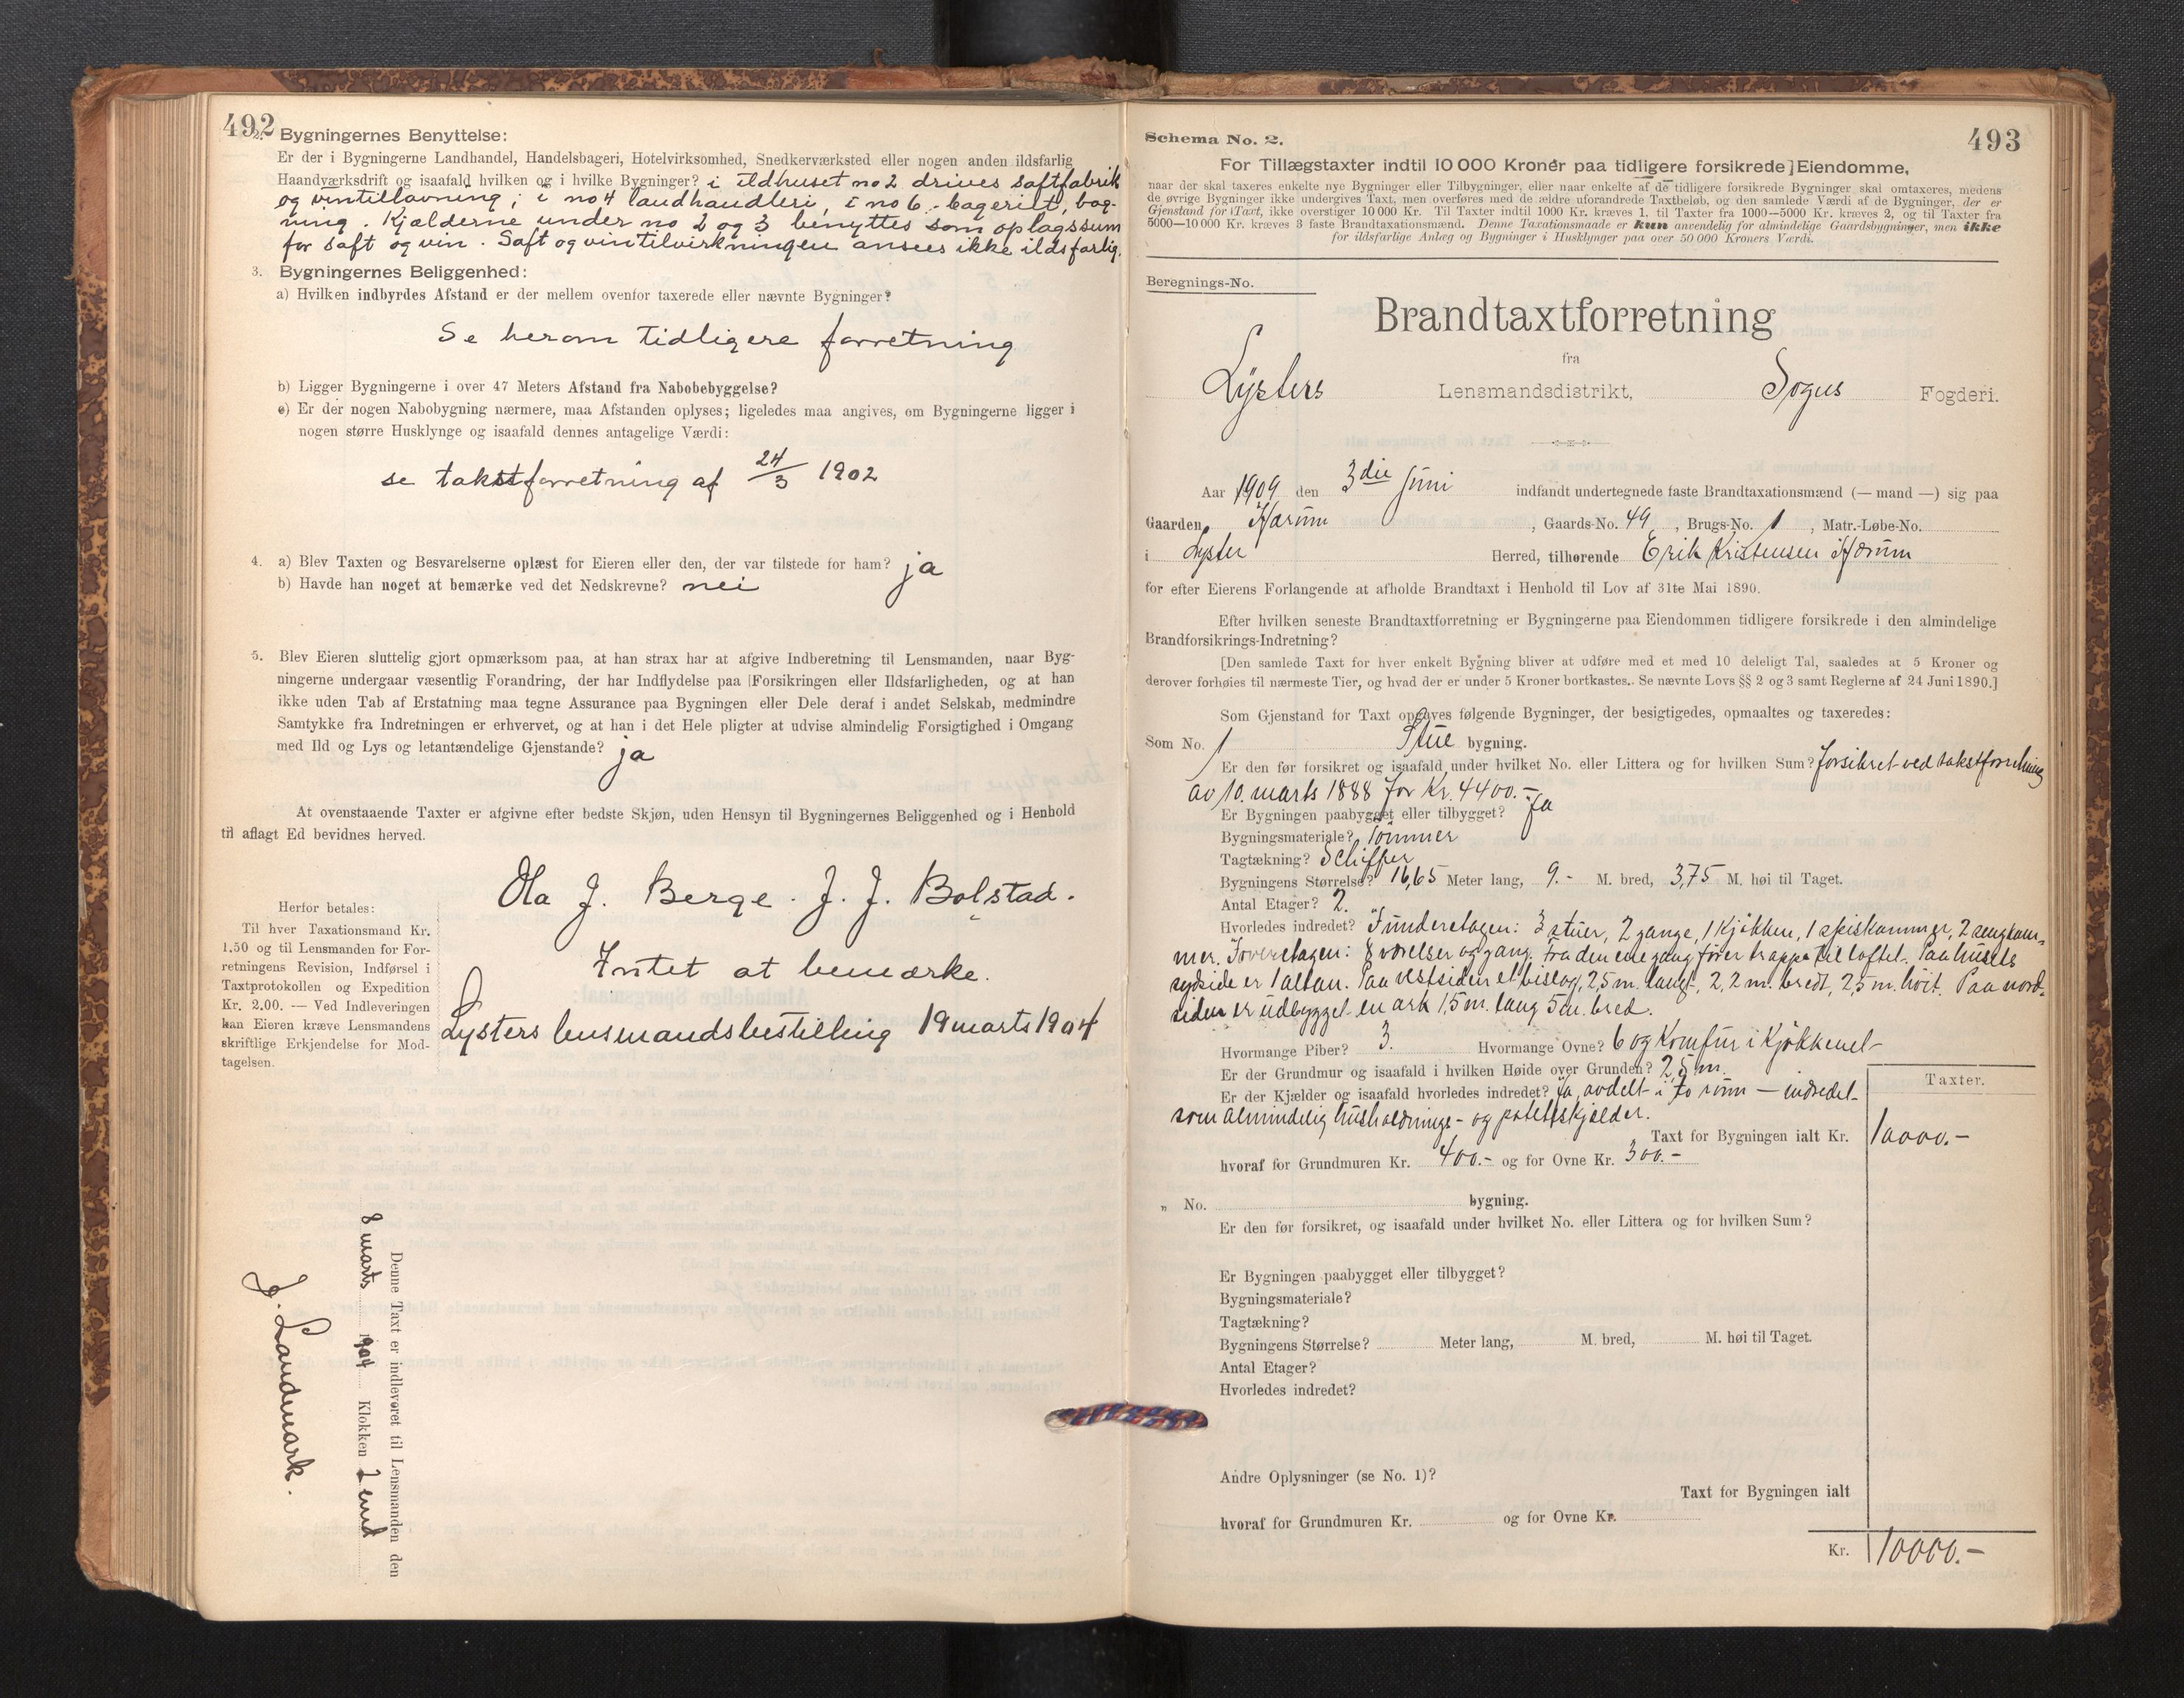 492
2. Bygningernes Benyttelse:
Er der i Bygningerne Landhandel, Handelsbageri, Hotelvirksomhed, Snedkerværksted eller nogen anden ildsfarlig
Haandværksdrift og isaafald hvilken og i hvilke Bygninger? i ildhuset no 2 drives saftfabrik
og vintillavning; i no 4 landhandleri, i no 6 - bageriet, bag-
ning. Kjælderne under no 2 og 3 benyttes som oplagssum
for saft og vin. Saft og vintilvirkningen ansees ikke ildsfarlig.
3. Bygningernes Beliggenhed:
a) Hvilken indbyrdes Afstand er der mellem ovenfor taxerede eller nævnte Bygninger?
Se herom tidligere forretning
b) Ligger Bygningerne i over 47 Meters Afstand fra Nabobebyggelse?
c) Er der nogen Nabobygning nærmere, maa Afstanden oplyses; ligeledes maa angives, om Bygningerne ligger i
nogen større Husklynge og isaafald dennes antagelige Værdi:
se takstforretning af 24/3 1902
4. a) Blev Taxten og Besvarelserne oplæst for Eieren eller den, der var tilstede for ham? ja
b) Havde han noget at bemærke ved det Nedskrevne? nei
5. Blev Eieren sluttelig gjort opmærksom paa, at han strax har at afgive Indberetning til Lensmanden, naar Byg-
ningerne undergaar væsentlig Forandring, der har Indflydelse paa Forsikringen eller Ildsfarligheden, og at han
ikke uden Tab af Erstatning maa tegne Assurance paa Bygningen eller Dele deraf i andet Selskab, medmindre
Samtykke fra Indretningen er erhvervet, og at han i det Hele pligter at udvise almindelig Forsigtighed i Omgang
med Ild og Lys og letantændelige Gjenstande? ja
At ovenstaaende Taxter er afgivne efter bedste Skjøn, uden Hensyn til Bygningernes Beliggenhed og i Henhold
til aflagt Ed bevidnes herved.
Ola J. Berge. J. J. Bolstad.
Intet at bemærke.
Lysters lensmandsbestilling 19 marts 1904
Herfor betales:
Til hver Taxationsmand Kr.
1.50 og til Lensmanden for For-
retningens Revision, Indførsel i
Taxtprotokollen og Expedition
Kr. 2.00. — Ved Indleveringen
kan Eieren kræve Lensmandens
skriftlige Erkjendelse for Mod-
tagelsen.
Denne Taxt er indleveret til Lensmanden den
8 marts 1904 Klokken 2 emd
J. Landmark.
493
Schema No. 2.
For Tillægstaxter indtil 10 000 Kroner paa tidligere forsikrede] Eiendomme,
naar der skal taxeres enkelte nye Bygninger eller Tilbygninger, eller naar enkelte af de tidligere forsikrede Bygninger skal omtaxeres, medens
de øvrige Bygninger ikke undergives Taxt, men overføres med de ældre uforandrede Taxtbeløb, og den samlede Værdi af de Bygninger, der er
Gjenstand for Taxt, ikke overstiger 10 000 Kr. Til Taxter indtil 1000 Kr. kræves 1, til Taxter fra 1000—5000 Kr. kræves 2, og til Taxter fra
5000—10 000 Kr. kræves 3 faste Brandtaxationsmænd. Denne Taxationsmaade er kun anvendelig for almindelige Gaardsbygninger, men ikke
for ildsfarlige Anlæg og Bygninger i Husklynger paa over 50 000 Kroners Værdi.
Beregnings-No.
Brandtaxtforretning
fra
Lysters Lensmandsdistrikt, Sogns Fogderi.
Aar 1909 den 3die Juni indfandt undertegnede faste Brandtaxationsmænd (— mand —) sig paa
Gaarden Hærum, Gaards-No. 49, Brugs-No. 1, Matr.-Løbe-No.
i Lyster Herred, tilhørende Erik Kristensen Hærum
for efter Eierens Forlangende at afholde Brandtaxt i Henhold til Lov af 31te Mai 1890.
Efter hvilken seneste Brandtaxtforretning er Bygningerne paa Eiendommen tidligere forsikrede i den almindelige
Brandforsikrings-Indretning?
[Den samlede Taxt for hver enkelt Bygning bliver at udføre med et med 10 deleligt Tal, saaledes at 5 Kroner og
derover forhøies til nærmeste Tier, og hvad der er under 5 Kroner bortkastes. Se nævnte Lovs §§ 2 og 3 samt Reglerne af 24 Juni 1890.]
Som Gjenstand for Taxt opgaves følgende Bygninger, der besigtigedes, opmaaltes og taxeredes:
Som No. 1 Stue bygning.
Er den før forsikret og isaafald under hvilket No. eller Littera og for hvilken Sum? Forsikret ved takstforretning
av 10. marts 1888 for Kr. 4400.-
Er Bygningen paabygget eller tilbygget? Ja
Bygningsmateriale? Tømmer
Tagtækning? Schiffer
Bygningens Størrelse? 16,65 Meter lang, 9.- M. bred, 3,75 M. høi til Taget.
Antal Etager? 2.
Hvorledes indredet? I underetagen: 3 stuer, 2 gange, 1 kjøkken, 1 spiskammer, 2 sengkam-
mer. I overetagen: 8 værelser og gang. Fra den ene gang fører trappe til loftet. Paa husets
sydside er 1 altan. Paa vestsiden et bislag, 2,5 m. langt, 2,2 m. bredt, 2,5 m. høit. Paa nord-
siden er udbygget en ark 1,5 m. lang 5 m. bred.
Hvormange Piber? 3. Hvormange Ovne? 6 og Komfur i Kjøkkenet
Er der Grundmur og isaafald i hvilken Høide over Grunden? 2,5 m.
Er der Kjælder og isaafald hvorledes indredet? Ja, avdelt i to rum — indredet
som almindelig husholdnings- og potetkjælder.
Taxter.
Taxt for Bygningen ialt Kr. 10000.-
hvoraf for Grundmuren Kr. 400.- og for Ovne Kr. 300.-
„ No. bygning.
Er den før forsikret, og isaafald under hvilket No. eller Littera og for hvilken Sum?
Er Bygningen paabygget eller tilbygget?
Bygningsmateriale?
Tagtækning?
Bygningens Størrelse? Meter lang, M. bred, M. høi til Taget.
Antal Etager?
Hvorledes indredet?
Andre Oplysninger (se No. 1)?
Taxt for Bygningen ialt
hvoraf for Grundmuren Kr. og for Ovne Kr.
Kr. 10000.-